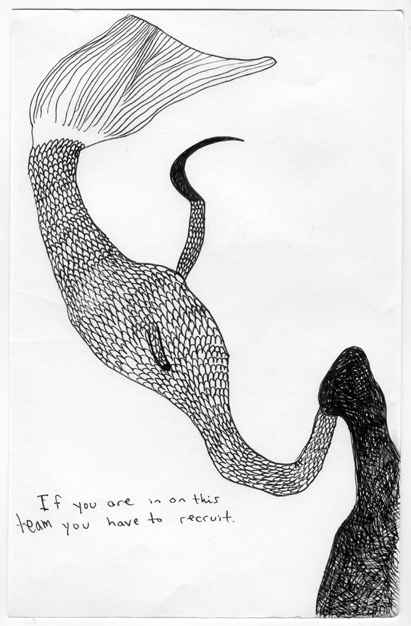 If you are in on this
team you have to recruit.